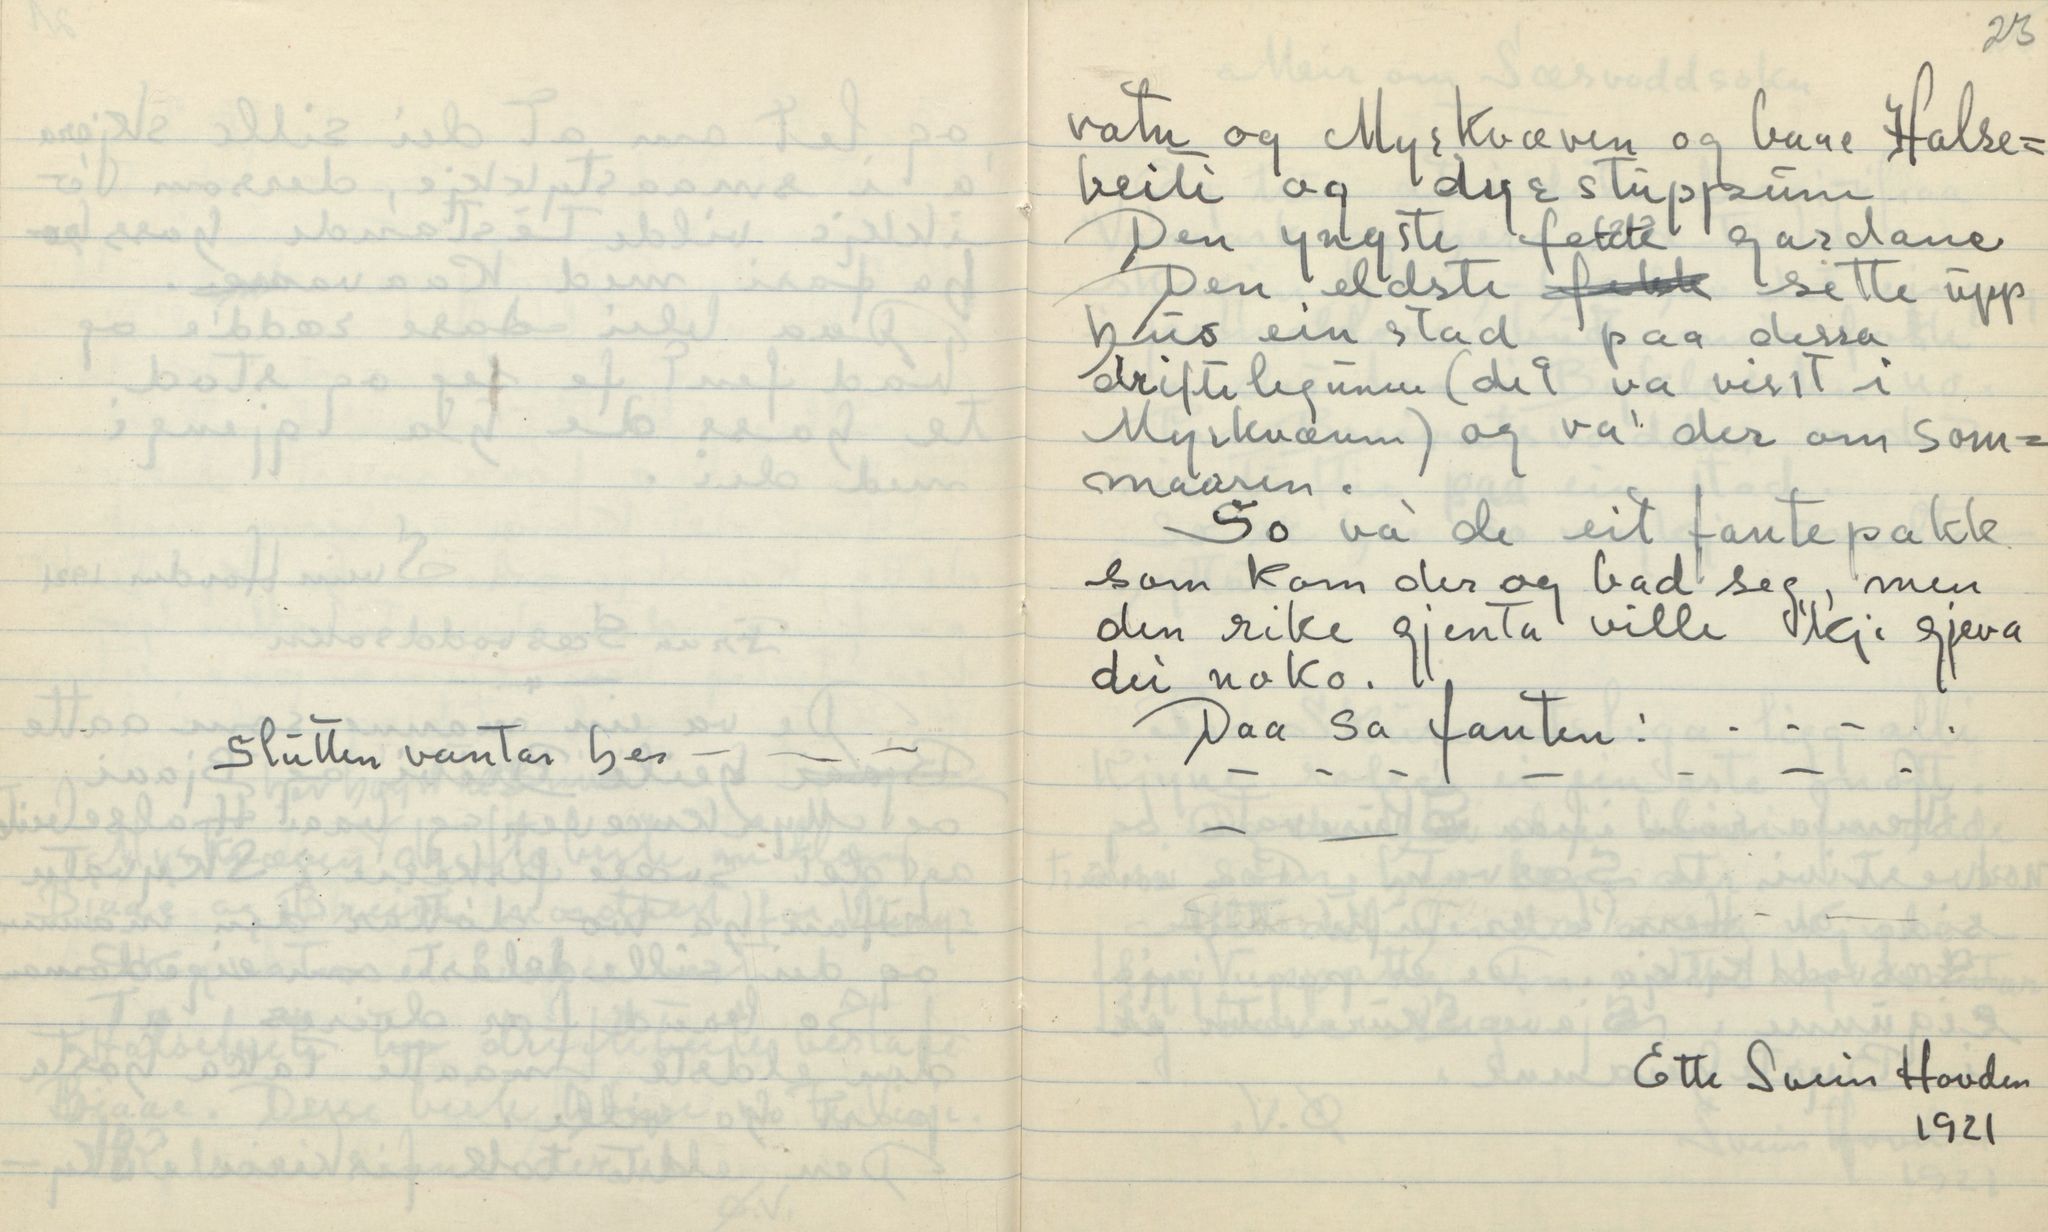 Slutten vantar her – – –
23
vatn og Myrkvæven og baae Halse=
beiti og dyrstuppsum
Den yngste fekk gardane
Den eldste fekk sette upp
hus ein stad paa dessa
driftelegunne (det va visst i
Myrkvæum) og va' der om som=
maaren.
So va de eit fantepakk
som kom der og bad seg, men
den rike gjenta ville 'kje gjeva
dei noko.
Daa sa fanten: - - - - -
– – – – – – –
– –
Ette Svein Hovden
1921